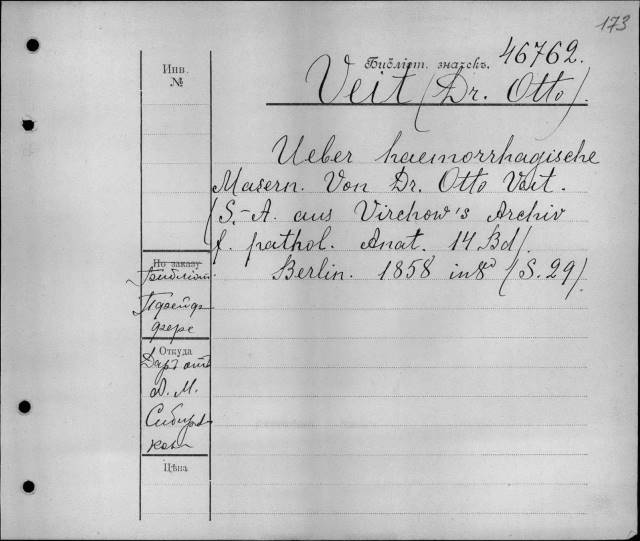 173
Инв.
№
Библіт. значекъ. 46762.
Veit (Dr. Otto).
Ueber haemorrhagische
Masern. Von Dr. Otto Veit.
(S.-A. aus Virchow's Archiv
f. pathol. Anat. 14 Bd).
Berlin. 1858 in 8° (S. 29).
По заказу
Откуда
Даръ отъ
Д. М.
Сибиря-
кова
Цѣна